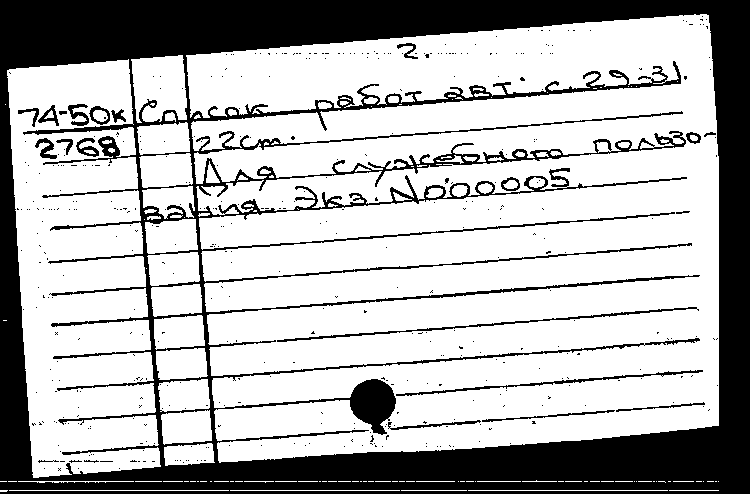 2.
74-50к Список работ авт. с. 29-31.
2768 22cm.
Для служебного пользо-
вания. Экз. №00005.